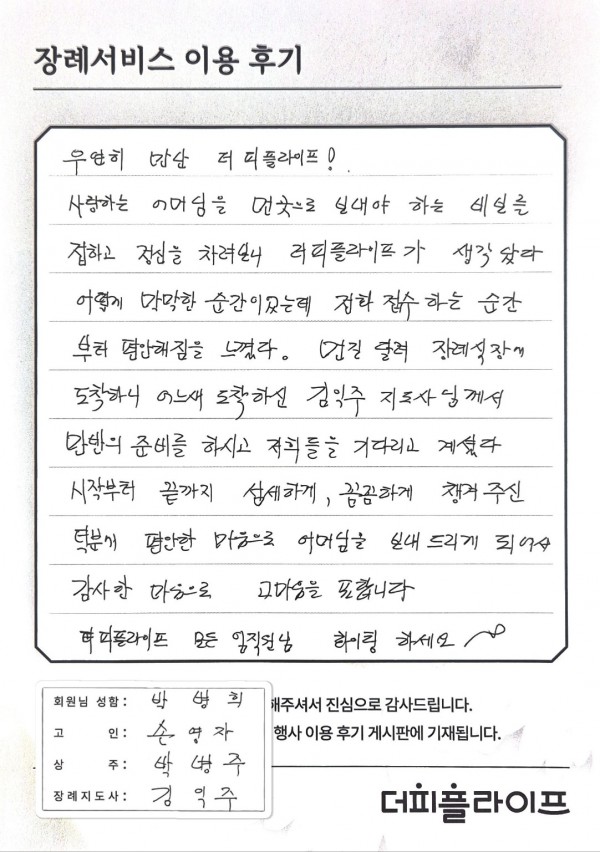 장례서비스 이용 후기
우연히 만난 더피플라이프!
사랑하는 어머님을 먼곳으로 보내야 하는 비보를
접하고 정신을 차려보니 더피플라이프가 생각 났다
어떻게 막막한 순간이었는데 전화 접수 하는 순간
부터 편안해짐을 느꼈다. 먼길 달려 장례식장에
도착하니 어느새 도착하신 김익주 지도사님께서
만반의 준비를 하시고 저희들을 기다리고 계셨다
시작부터 끝까지 섬세하게, 꼼꼼하게 챙겨주신
덕분에 편안한 마음으로 어머님을 보내 드리게 되어서
감사한 마음으로 고마움을 표합니다
더피플라이프 모든 임직원님 화이팅 하세요
회원님 성함: 박병희
고 인: 손영자
상 주: 박병주
장례지도사: 김익주
해주셔서 진심으로 감사드립니다.
행사 이용 후기 게시판에 기재됩니다.
더피플라이프